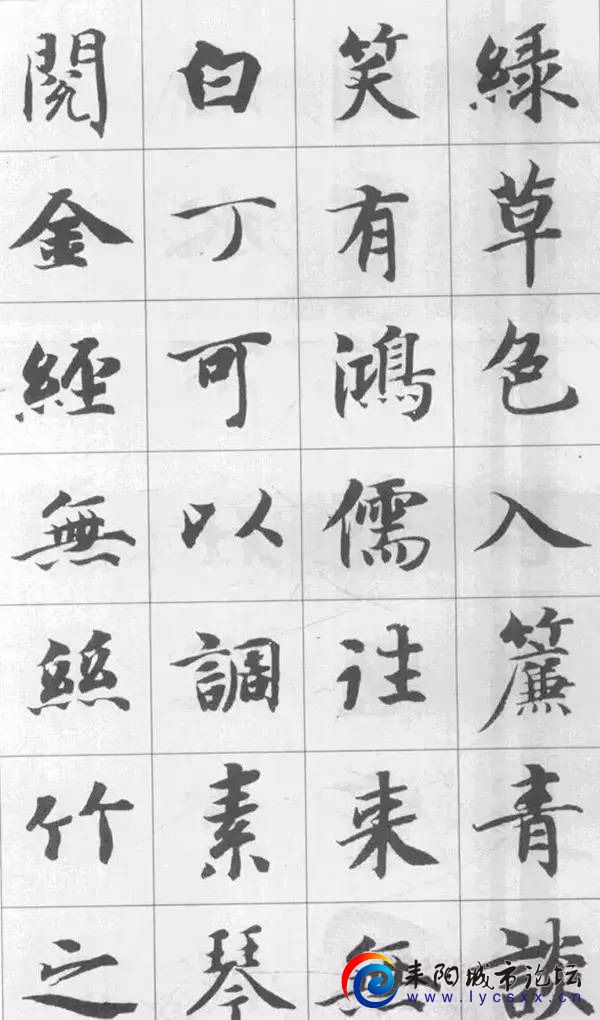 綠草色入簾青談
笑有鴻儒往來無
白丁可以調素琴
閱金經無絲竹之
耒阳城市论坛
www.lycsxx.cn